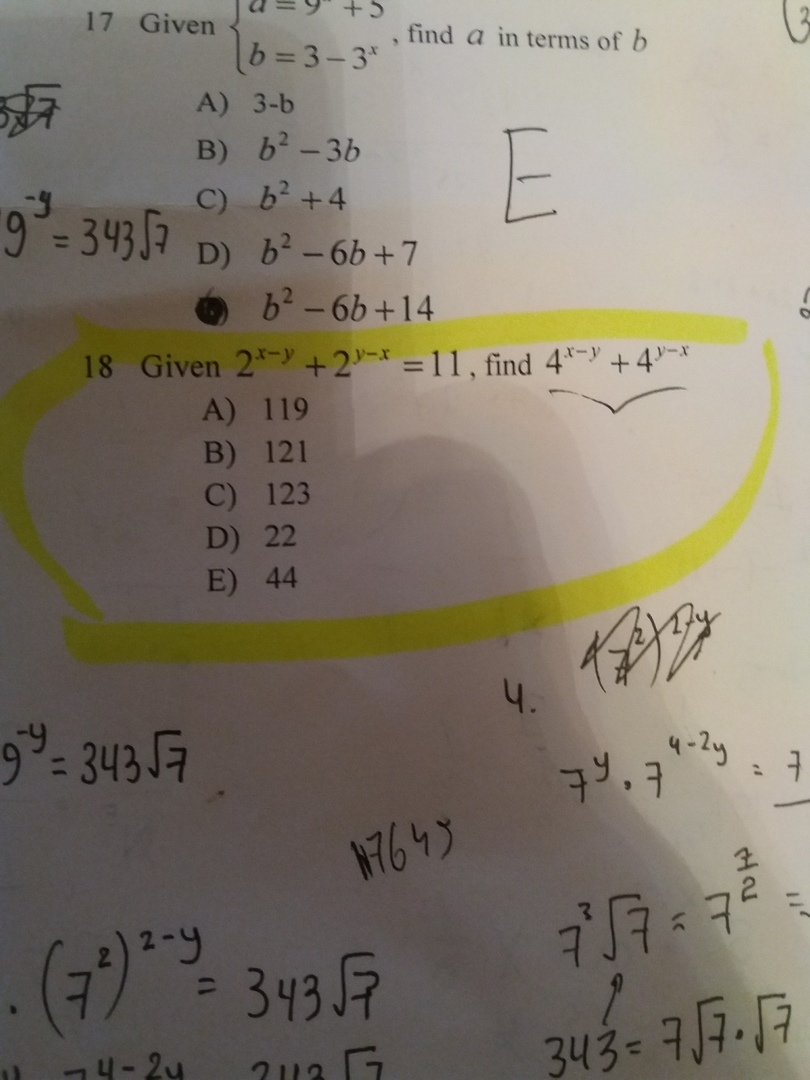 17 Given { a = 9ˣ + 5
b = 3 − 3ˣ , find a in terms of b
A) 3-b
B) b² − 3b
C) b² + 4
D) b² − 6b + 7
b² − 6b + 14
E
9⁻ʸ = 343√7
18 Given 2ˣ⁻ʸ + 2ʸ⁻ˣ = 11, find 4ˣ⁻ʸ + 4ʸ⁻ˣ
A) 119
B) 121
C) 123
D) 22
E) 44
4.
9⁻ʸ = 343√7
7ʸ · 7⁴⁻²ʸ = 7
7³√7 = 7^(7/2) =
. (7²)²⁻ʸ = 343√7
343 = 7√7·√7
7⁴⁻²ʸ 343√7